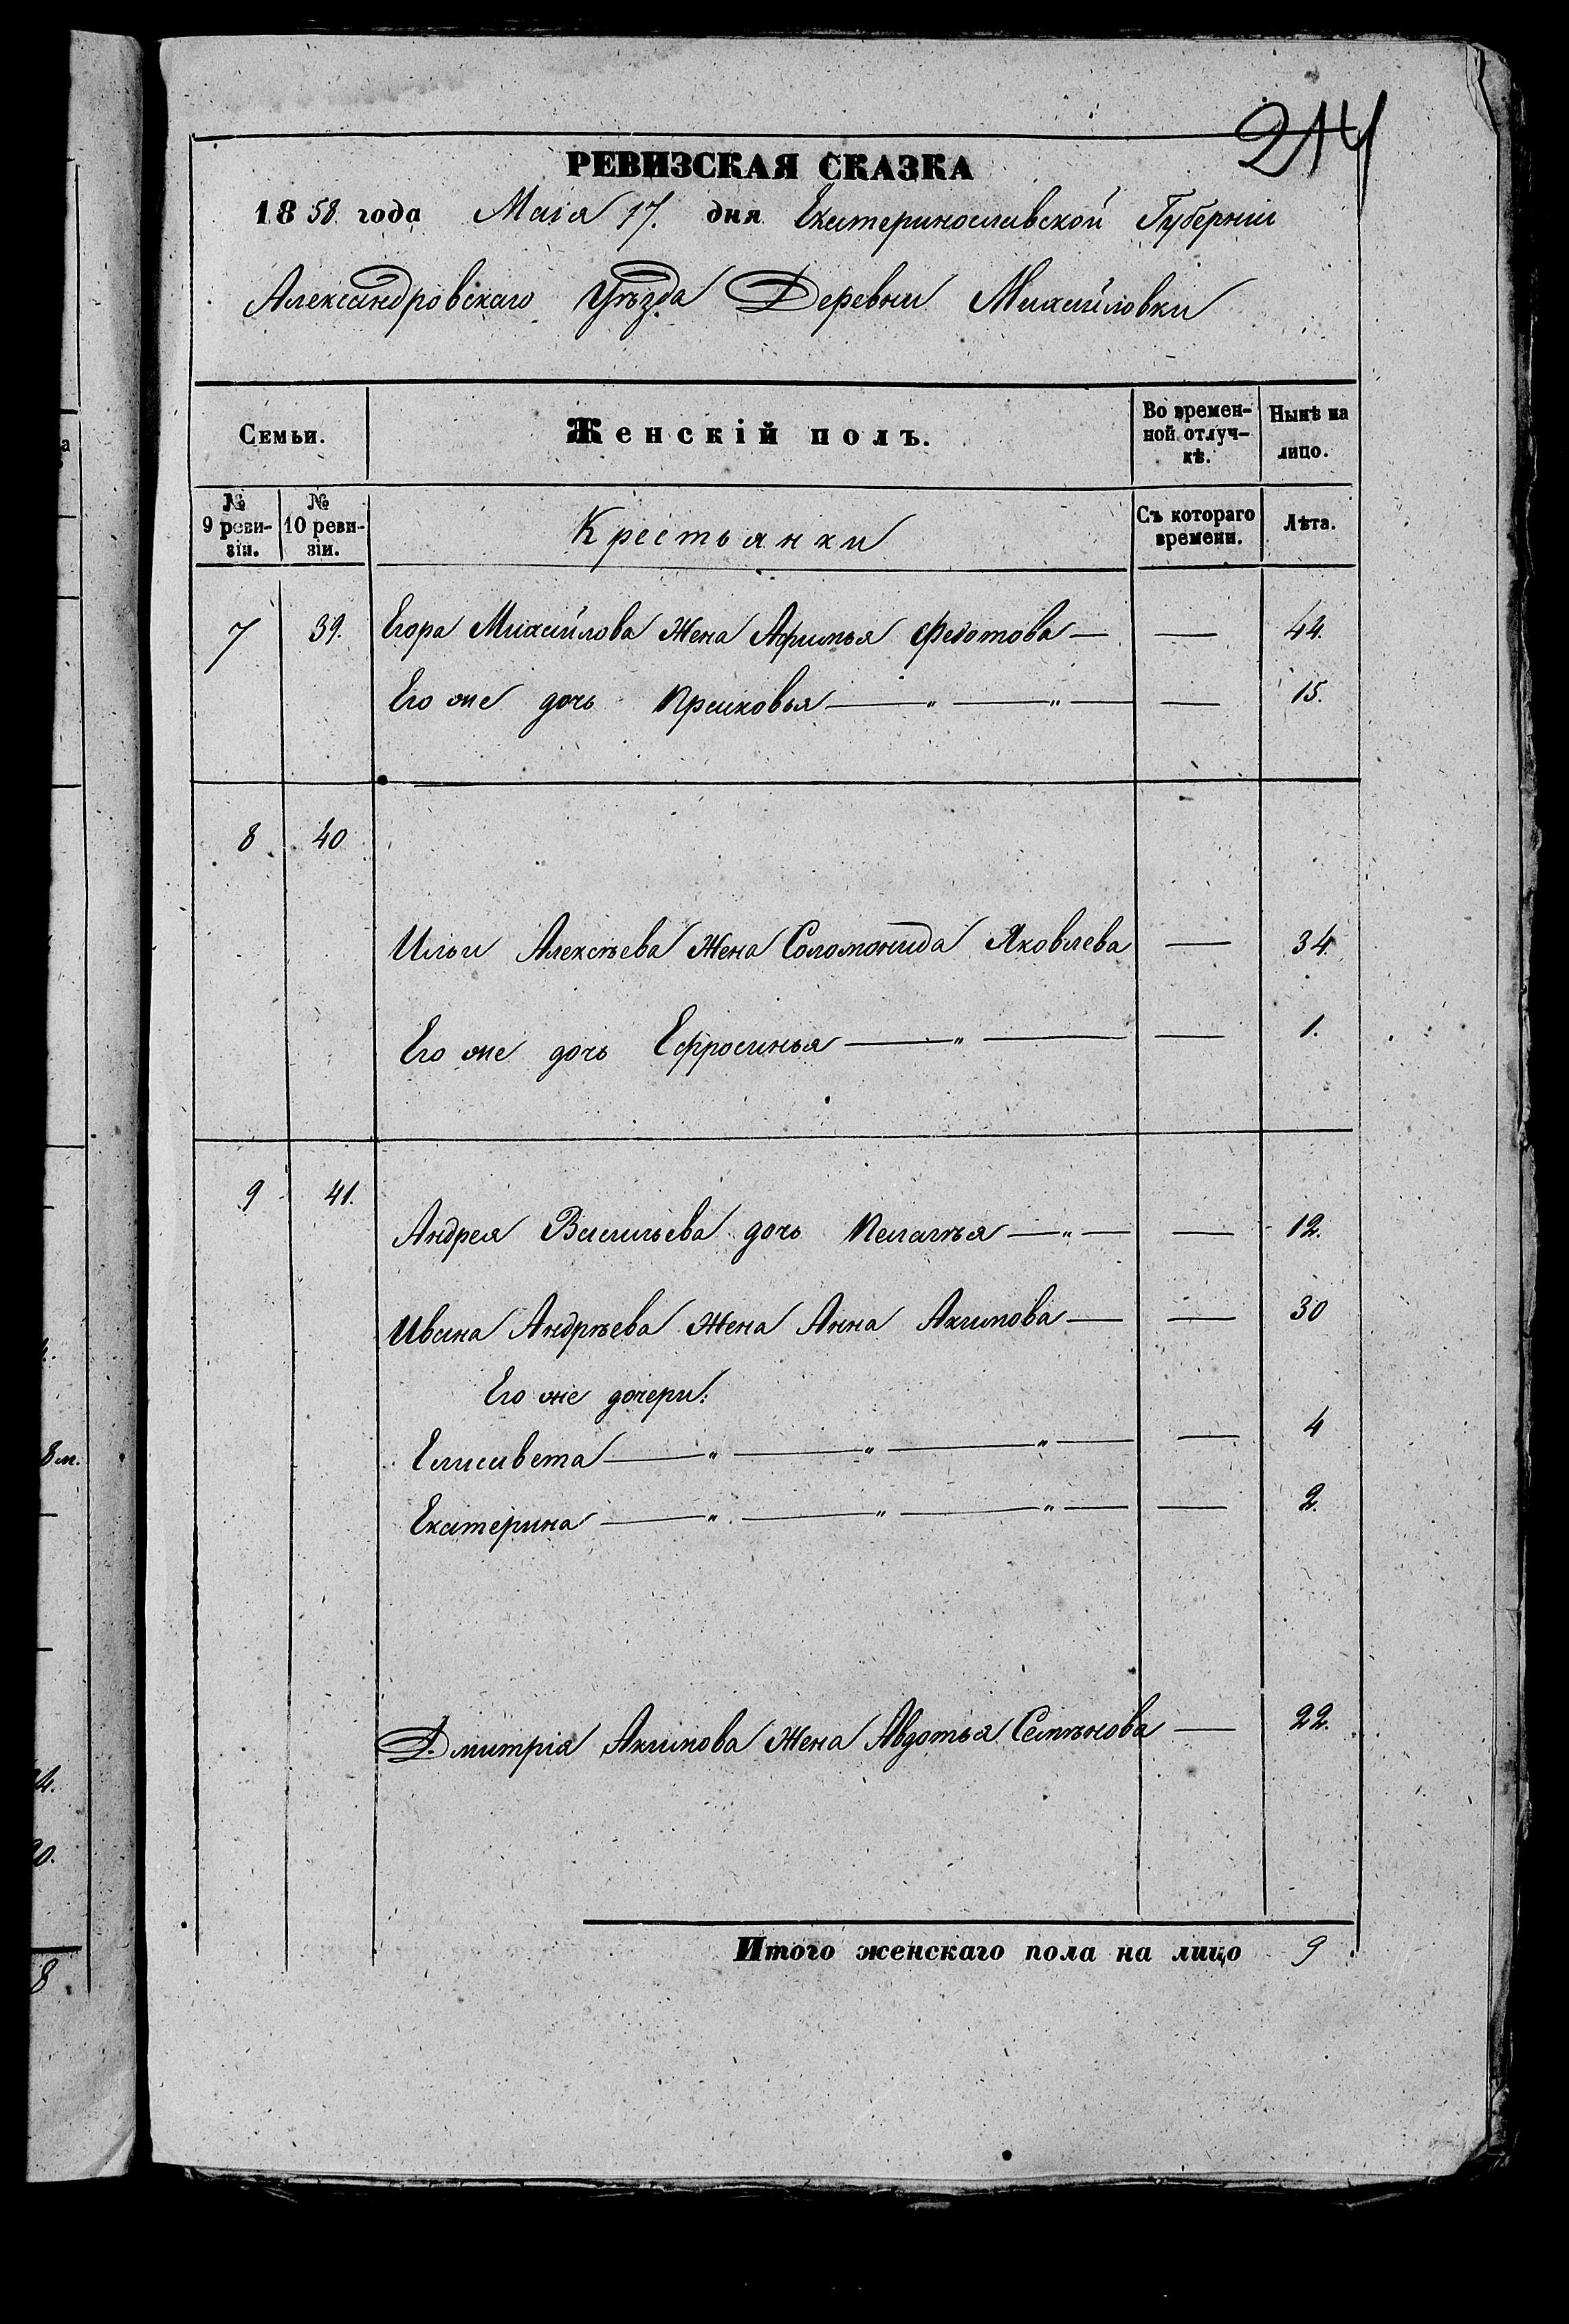 214
РЕВИЗСКАЯ СКАЗКА
1858 года Маія 17. дня Екатеринославской Губерніи
Александровскаго Уѣзда Деревни Михайловки
Семьи. Женскій полъ. Во времен-ной отлуч-кѣ. Нынѣ на лицо.
№ 9 реви-зіи. № 10 реви-зіи. Крестьянки Съ котораго времени. Лѣта.
7 39. Егора Михайлова Жена Афимья Федотова — — 44.
Его же дочь Прасковья — „ — „ — — 15.
8 40
Ильи Алексѣева Жена Соломонида Яковлева — 34.
Его же дочь Ефросинья — „ — — 1.
9 41.
Андрея Васильева дочь Пелагѣя — „ — — 12.
Ивана Андрѣева Жена Анна Акимова — — 30
Его же дочери:
Елисавета — „ — „ — „ — — 4
Екатерина — „ — „ — „ — — 2.
Дмитрія Акимова Жена Авдотья Семѣнова — 22.
Итого женскаго пола на лицо 9
а
8 м.
4.
0.
8